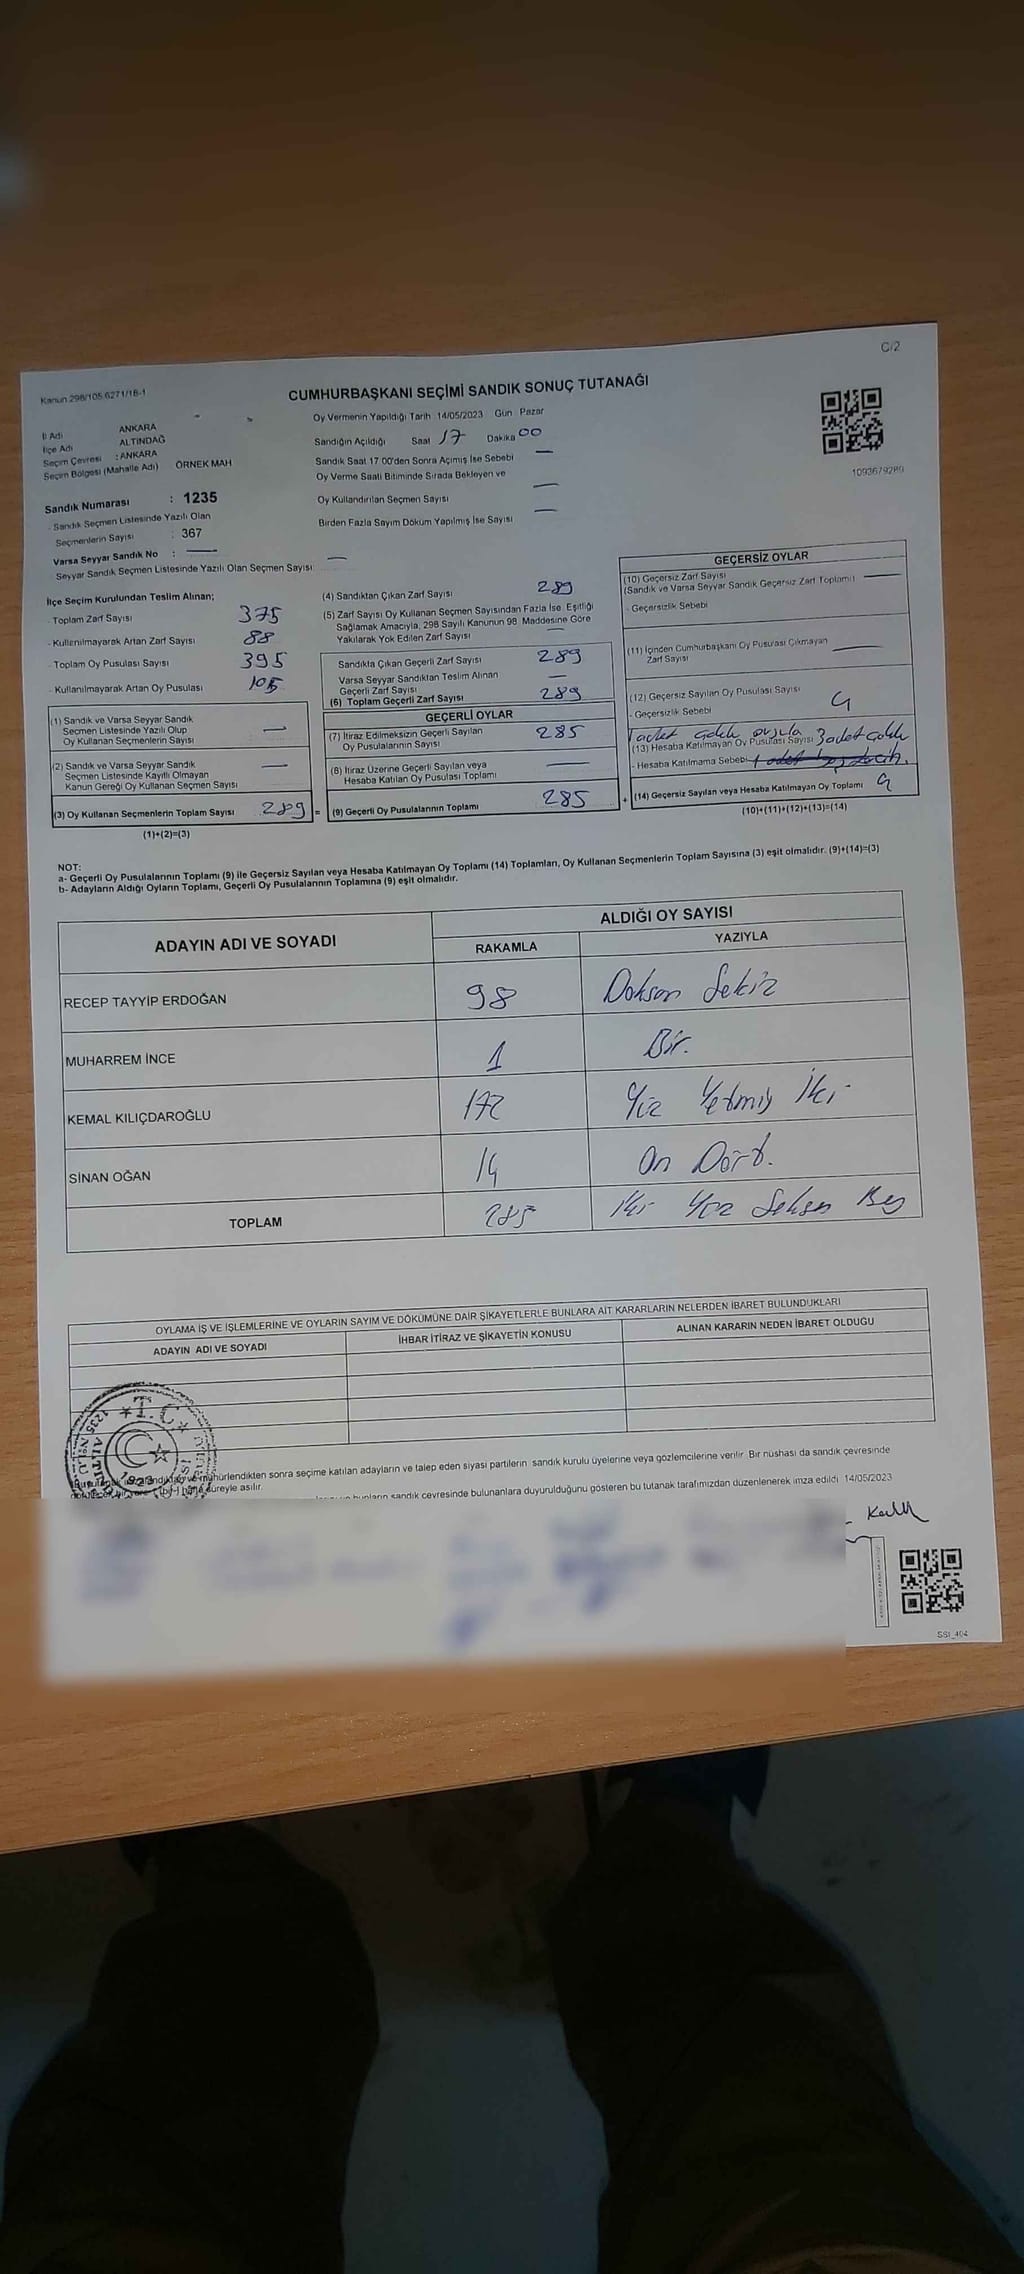 C/2
Kanun 298/105.6271/18-1
CUMHURBAŞKANI SEÇİMİ SANDIK SONUÇ TUTANAĞI
İl Adı ANKARA
İlçe Adı ALTINDAĞ
Seçim Çevresi : ANKARA
Seçim Bölgesi (Mahalle Adı) ÖRNEK MAH
Oy Vermenin Yapıldığı Tarih 14/05/2023 Gün Pazar
Sandığın Açıldığı Saat 17 Dakika 00
Sandık Saat 17 00'den Sonra Açımış İse Sebebi —
Oy Verme Saati Bitiminde Sırada Bekleyen ve
Oy Kullandırılan Seçmen Sayısı —
Birden Fazla Sayım Döküm Yapılmış İse Sayısı —
1093679280
Sandık Numarası : 1235
- Sandık Seçmen Listesinde Yazılı Olan
Seçmenlerin Sayısı : 367
Varsa Seyyar Sandık No : —
Seyyar Sandık Seçmen Listesinde Yazılı Olan Seçmen Sayısı: —
İlçe Seçim Kurulundan Teslim Alınan;
- Toplam Zarf Sayısı 375
- Kullanılmayarak Artan Zarf Sayısı 88
- Toplam Oy Pusulası Sayısı 395
- Kullanılmayarak Artan Oy Pusulası
(1) Sandık ve Varsa Seyyar Sandık
Seçmen Listesinde Yazılı Olup
Oy Kullanan Seçmenlerin Sayısı —
(2) Sandık ve Varsa Seyyar Sandık
Seçmen Listesinde Kayıtlı Olmayan
Kanun Gereği Oy Kullanan Seçmen Sayısı —
(3) Oy Kullanan Seçmenlerin Toplam Sayısı 289 =
(1)+(2)=(3)
(4) Sandıktan Çıkan Zarf Sayısı 289
(5) Zarf Sayısı Oy Kullanan Seçmen Sayısından Fazla İse Eşitliği
Sağlamak Amacıyla, 298 Sayılı Kanunun 98 Maddesine Göre
Yakılarak Yok Edilen Zarf Sayısı —
Sandıkta Çıkan Geçerli Zarf Sayısı 289
Varsa Seyyar Sandıktan Teslim Alınan
Geçerli Zarf Sayısı —
(6) Toplam Geçerli Zarf Sayısı 289
GEÇERLİ OYLAR
(7) İtiraz Edilmeksizin Geçerli Sayılan
Oy Pusulalarının Sayısı 285
(8) İtiraz Üzerine Geçerli Sayılan veya
Hesaba Katılan Oy Pusulası Toplamı —
(9) Geçerli Oy Pusulalarının Toplamı 285 +
GEÇERSİZ OYLAR
(10) Geçersiz Zarf Sayısı
(Sandık ve Varsa Seyyar Sandık Geçersiz Zarf Toplamı) —
- Geçersizlik Sebebi
(11) İçinden Cumhurbaşkanı Oy Pusulası Çıkmayan
Zarf Sayısı —
(12) Geçersiz Sayılan Oy Pusulası Sayısı 4
- Geçersizlik Sebebi
(13) Hesaba Katılmayan Oy Pusulası Sayısı 3 adet
- Hesaba Katılmama Sebebi
(14) Geçersiz Sayılan veya Hesaba Katılmayan Oy Toplamı 4
(10)+(11)+(12)+(13)=(14)
NOT:
a- Geçerli Oy Pusulalarının Toplamı (9) ile Geçersiz Sayılan veya Hesaba Katılmayan Oy Toplamı (14) Toplamları, Oy Kullanan Seçmenlerin Toplam Sayısına (3) eşit olmalıdır. (9)+(14)=(3)
b- Adayların Aldığı Oyların Toplamı, Geçerli Oy Pusulalarının Toplamına (9) eşit olmalıdır.
ADAYIN ADI VE SOYADI ALDIĞI OY SAYISI
RAKAMLA YAZIYLA
RECEP TAYYİP ERDOĞAN 98 Doksan Sekiz
MUHARREM İNCE 1 Bir.
KEMAL KILIÇDAROĞLU 172 Yüz Yetmiş İki
SİNAN OĞAN 14 On Dört.
TOPLAM 285 İki Yüz Seksen Beş
OYLAMA İŞ VE İŞLEMLERİNE VE OYLARIN SAYIM VE DÖKÜMÜNE DAİR ŞİKAYETLERLE BUNLARA AİT KARARLARIN NELERDEN İBARET BULUNDUKLARI
ADAYIN ADI VE SOYADI İHBAR İTİRAZ VE ŞİKAYETİN KONUSU ALINAN KARARIN NEDEN İBARET OLDUĞU
T.C.
1923
mühürlendikten sonra seçime katılan adayların ve talep eden siyasi partilerin sandık kurulu üyelerine veya gözlemcilerine verilir Bir nüshası da sandık çevresinde
süreyle asılır.
bunların sandık çevresinde bulunanlara duyurulduğunu gösteren bu tutanak tarafımızdan düzenlenerek imza edildi 14/05/2023
SSI_404